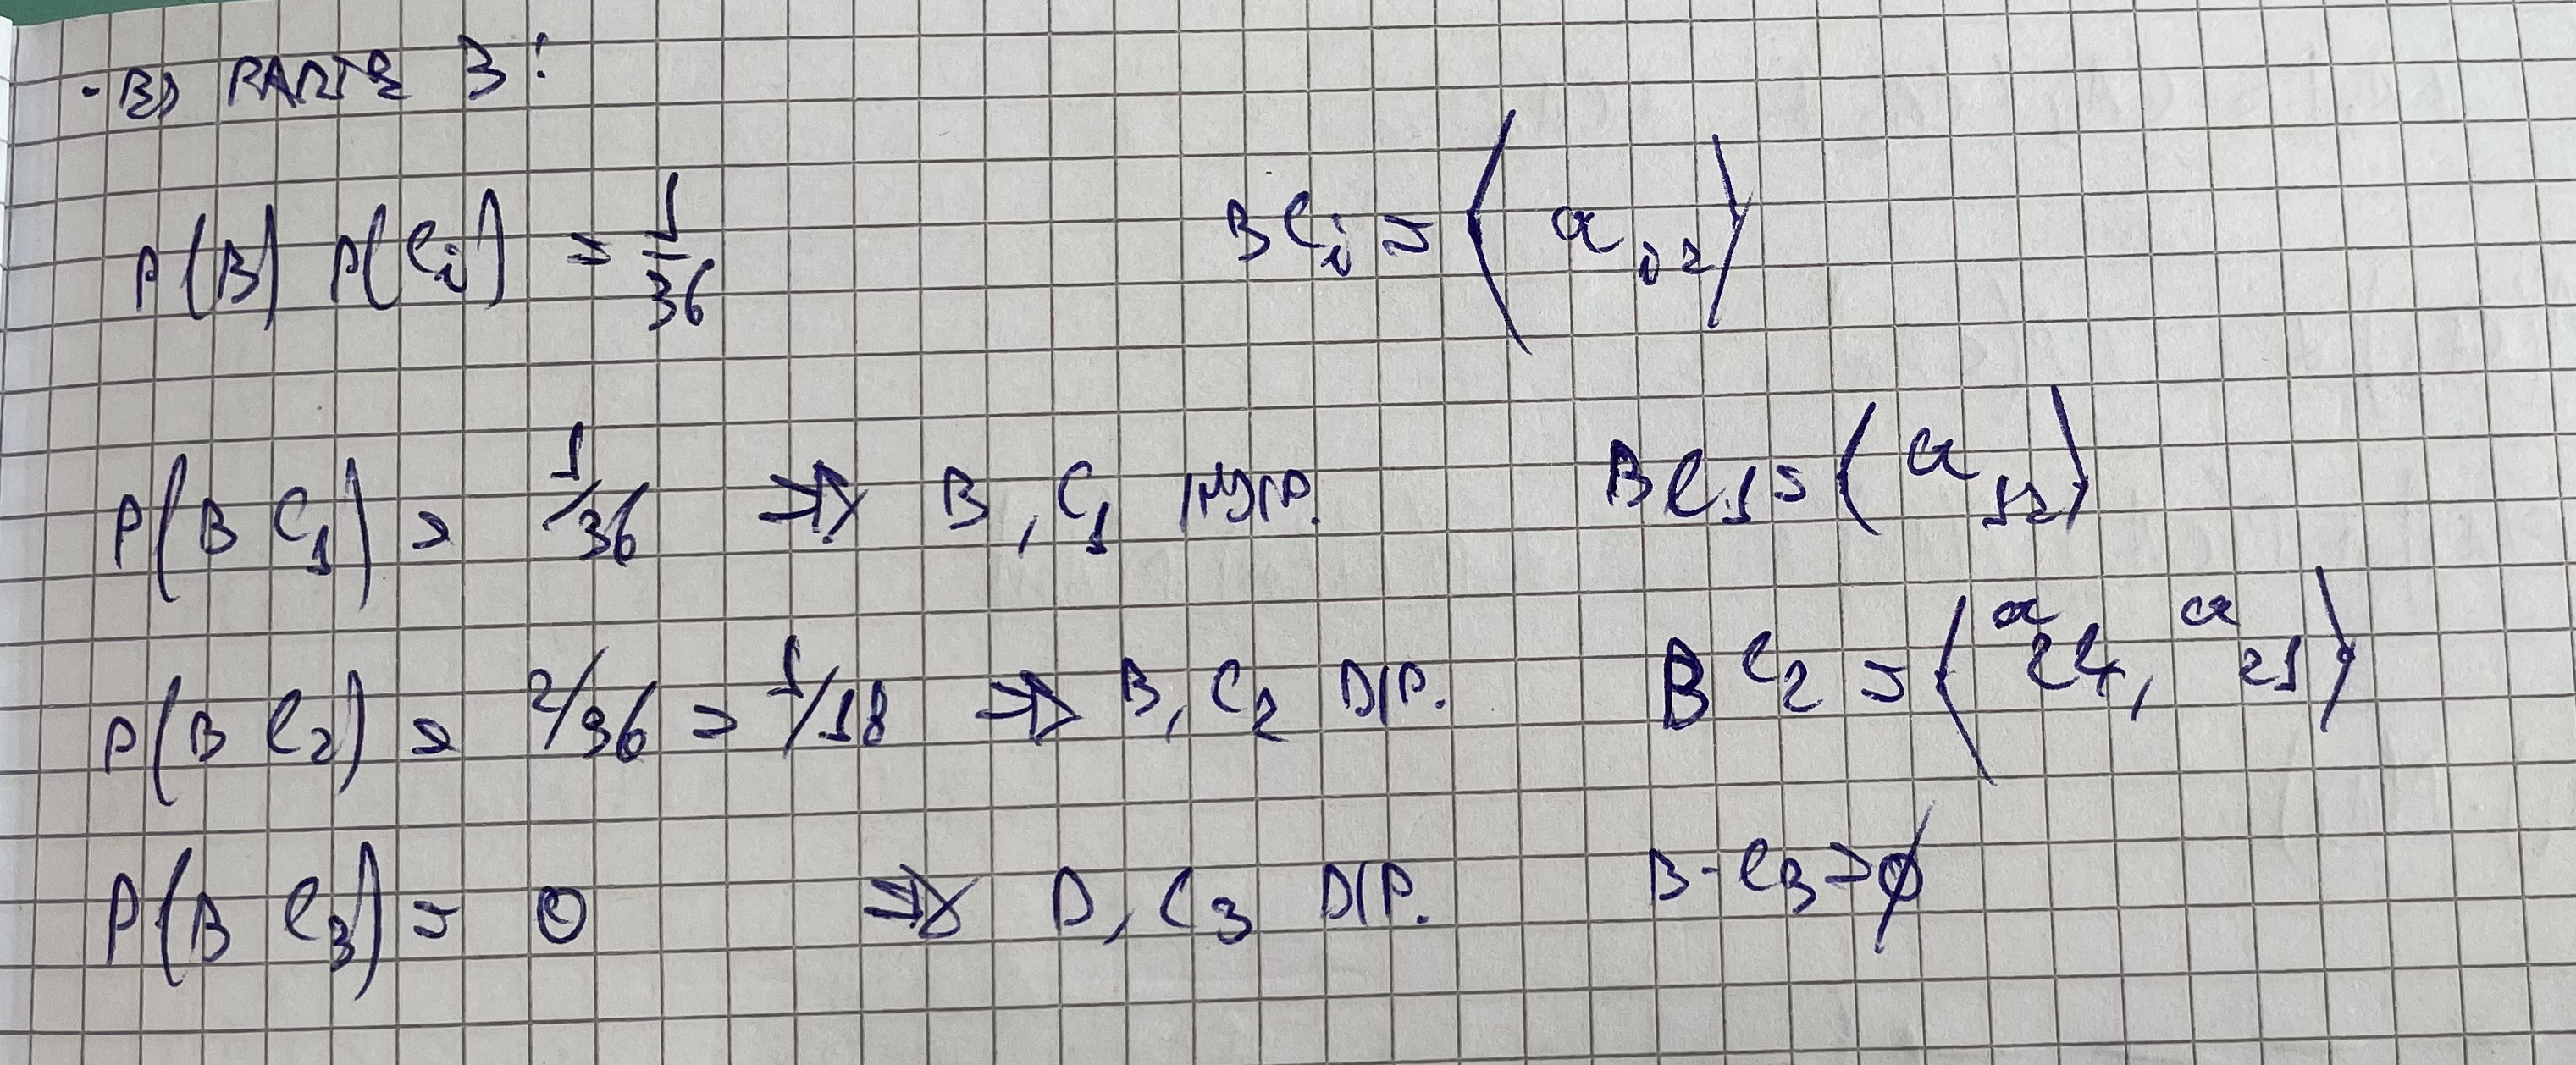 - B) PARTE 3:
P(B) P(Ci) = 1/36 BCi = { a i2 }
P(B C1) = 1/36 ⇒ B, C1 INDIP. BC1 = { a 12 }
P(B C2) = 2/36 = 1/18 ⇒ B, C2 DIP. B C2 = { a 24, a 21 }
P(B C3) = 0 ⇒ D, C3 DIP. B · C3 = ∅